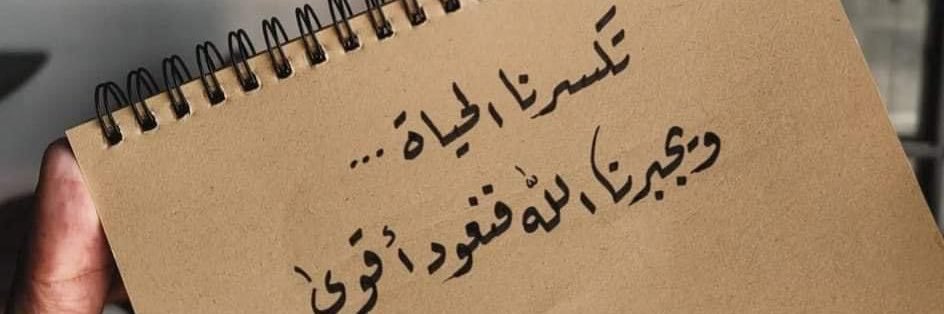 تكسرنا الحياة ...
ويجبرنا الله فنعود أقوى